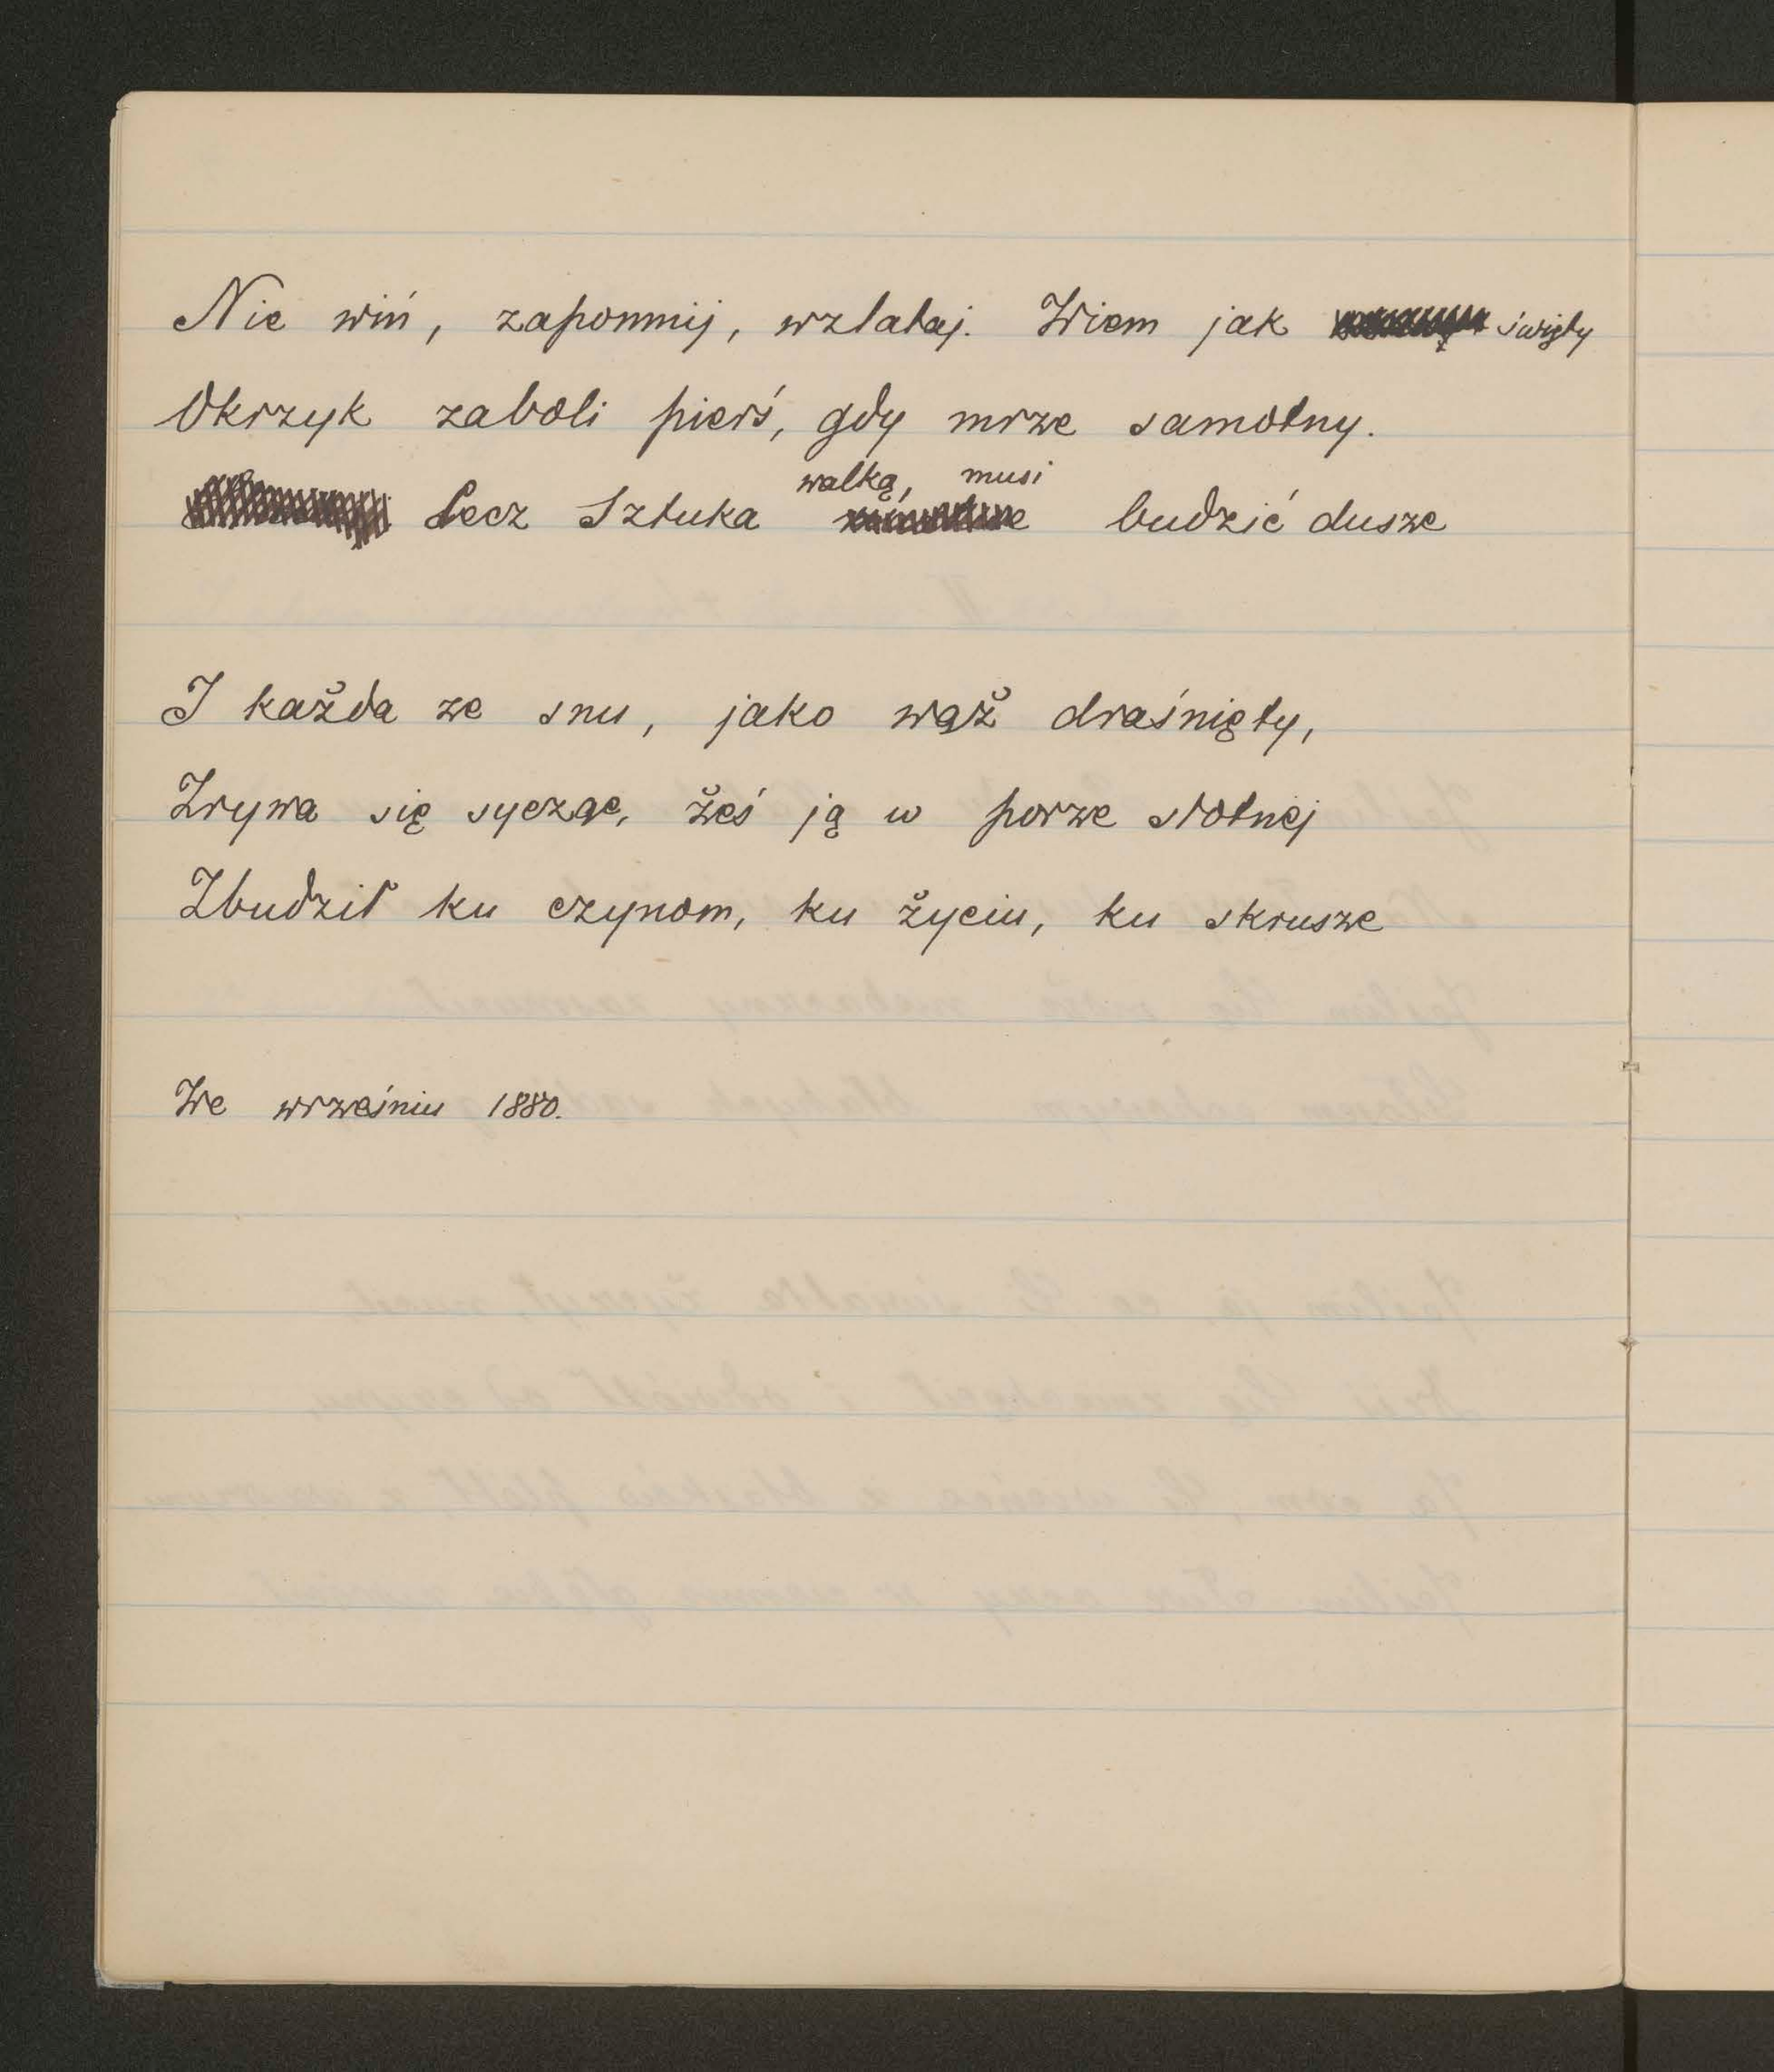 Nie wiń, zapomnij, wzlataj. Wiem jak święty
Okrzyk zaboli pierś, gdy mrze samotny.
Lecz Sztuka walką, musi budzić dusze
I każda ze snu, jako wąż draśnięty,
Zrywa się sycząc, żeś ją w porze słotnej
Zbudził ku czynom, ku życiu, ku skrusze
We wrześniu 1880.